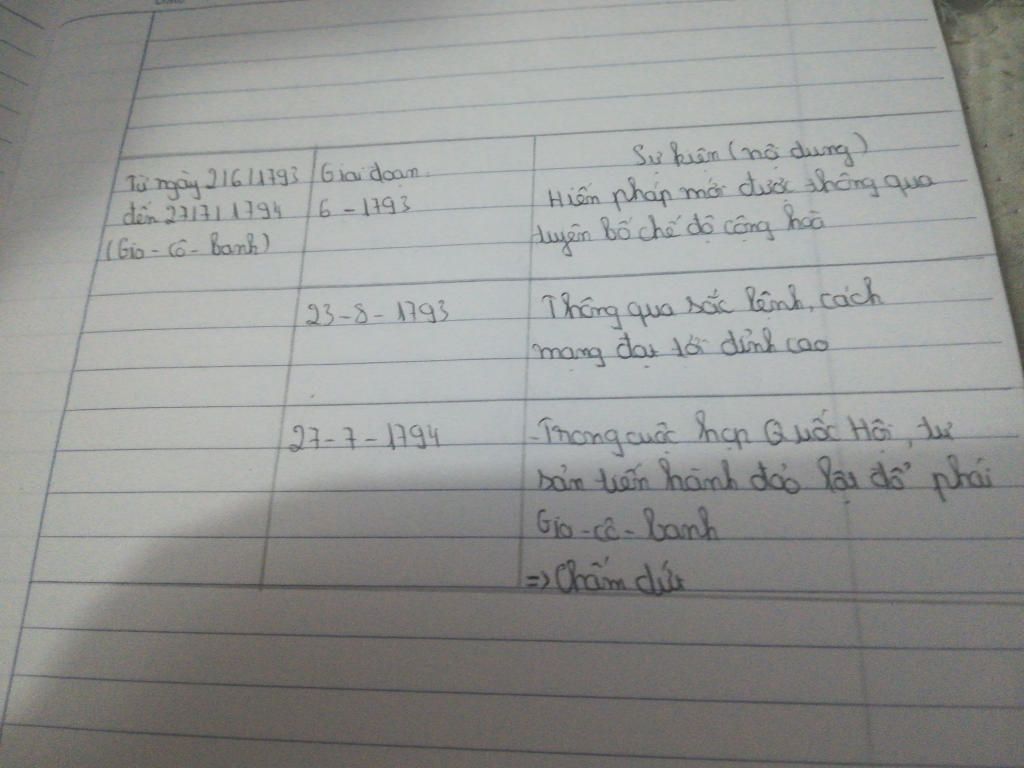 Từ ngày 2/6/1793
đến 27/7/1794
(Gia-cô-banh)
Giai đoạn.
6-1793
Sự kiện (nội dung)
Hiến pháp mới được thông qua
tuyên bố chế độ cộng hoà
23-8-1793
Thông qua sắc lệnh, cách
mạng đạt tới đỉnh cao
27-7-1794
-Trong cuộc họp Quốc Hội, tư
sản tiến hành đảo lật đổ phái
Gia-cô-banh
=> Chấm dứt